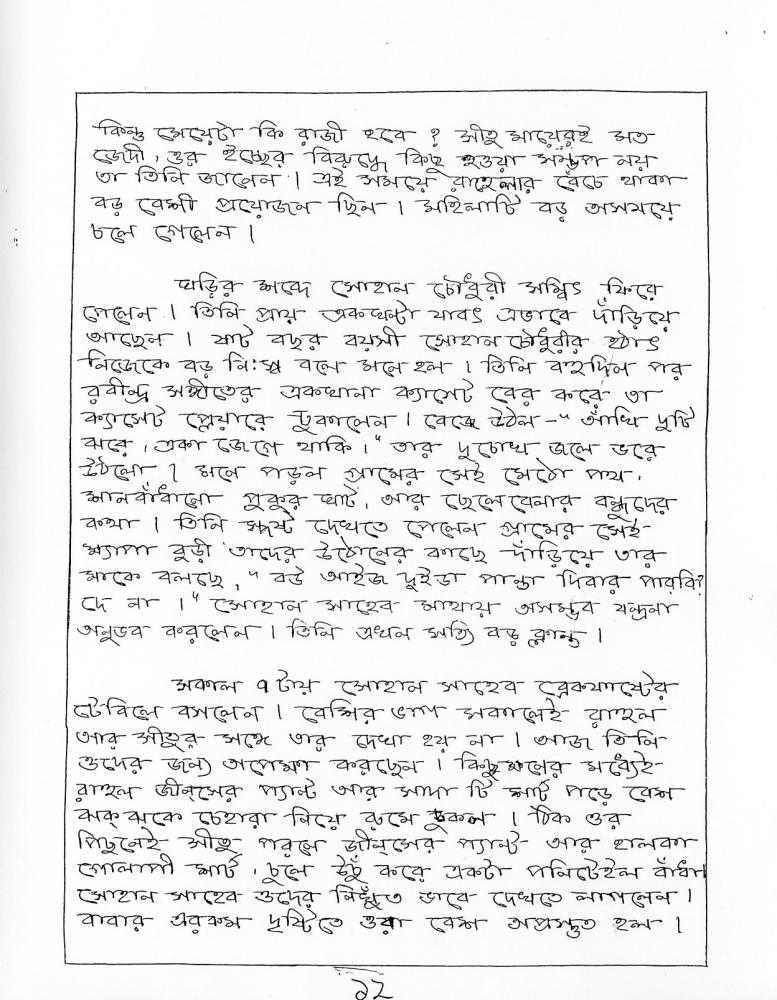 কিন্তু মেয়েটা কি রাজী হবে ? সীতু মায়েরই মত
জেদী, ওর ইচ্ছের বিরুদ্ধে কিছু হওয়া সম্ভপা নয়
তা তিনি জানেন । এই সময়ে রাহেলার বেঁচে থাকা
বড় বেশী প্রয়োজন ছিল । মহিলাটি বড় অসময়ে
চলে গেলেন ।
ঘড়ির শব্দে সোহান চৌধুরী সম্বিৎ ফিরে
পেলেন । তিনি প্রায় একঘন্টা যাবৎ এভাবে দাঁড়িয়ে
আছেন । ষাট বছর বয়সী সোহান চৌধুরীর হঠাৎ
নিজেকে বড় নিঃস্ব বলে মনে হল । তিনি বহুদিন পর
রবীন্দ্র সঙ্গীতের একখানা ক্যাসেট বের করে তা
ক্যাসেট প্লেয়ারে ঢুকালেন । বেজে উঠল - "আঁখি দুটি
ঝরে, একা জেগে থাকি ।" তার দুচোখ জলে ভরে
উঠলো । মনে পড়ল গ্রামের সেই মেঠো পথ,
শানবাঁধানো পুকুর ঘাট, আর ছেলেবেলার বন্ধুদের
কথা । তিনি স্পষ্ট দেখতে পেলেন গ্রামের সেই
ক্ষ্যাপা বুড়ী তাদের উঠোনের কাছে দাঁড়িয়ে তার
মাকে বলছে, "বউ আইজ দুইডা পান্তা দিবার পারবি?
দে না ।" সোহান সাহেব মাথায় অসম্ভব যন্ত্রনা
অনুভব করলেন । তিনি এখন সত্যি বড় ক্লান্ত ।
সকাল ৭টায় সোহান সাহেব ব্রেকফাষ্টের
টেবিলে বসলেন । বেশির ভাগ সকালেই রাহুল
আর সীতুর সঙ্গে তার দেখা হয় না । আজ তিনি
ওদের জন্য অপেক্ষা করছেন । কিছুক্ষনের মধ্যেই
রাহুল জীনসের প্যান্ট আর সাদা টি শার্ট পড়ে বেশ
ঝক্‌ঝকে চেহারা নিয়ে রুমে ঢুকল । ঠিক ওর
পিছনেই সীতু পরনে জীনসের প্যান্ট আর হালকা
গোলাপী শার্ট, চুলে উঁচু করে একটা পনিটেইল বাঁধা
সোহান সাহেব ওদের নিখুঁত ভাবে দেখতে লাগলেন ।
বাবার এরকম দৃষ্টিতে ওরা বেশ অপ্রস্তুত হল ।
১২